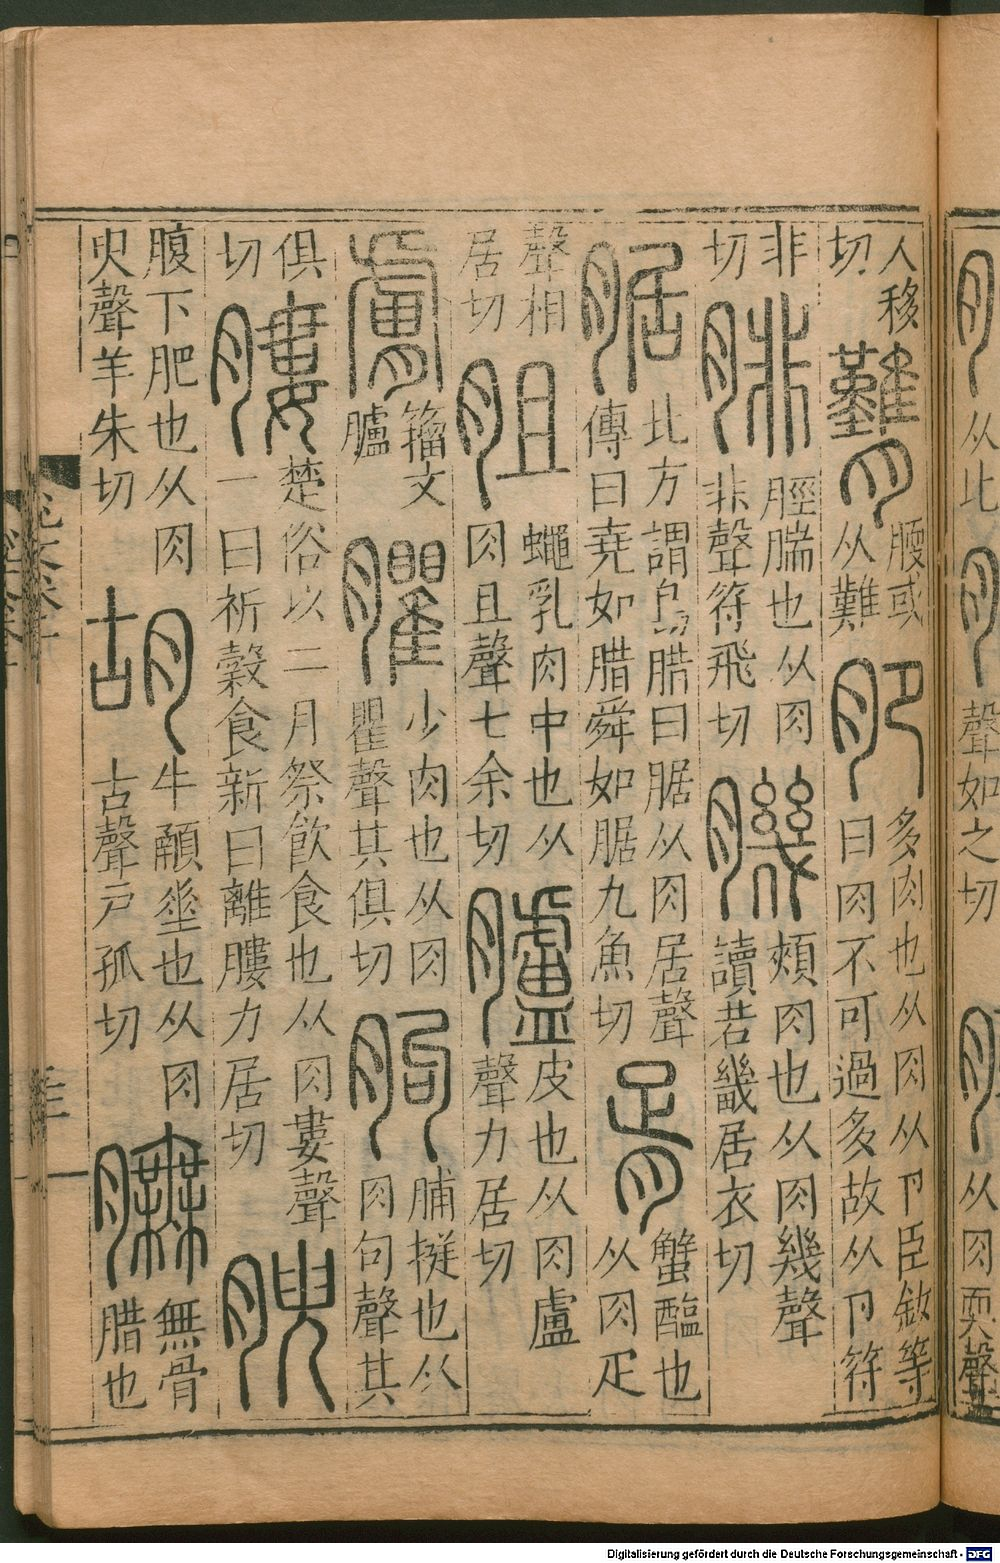 聲如之切
从肉耎聲
人移切臡腝或从難肥多肉也从肉从卩臣鉉等曰肉不可過多故从卩符
非切腓脛腨也从肉非聲符飛切𦠄頰肉也从肉幾聲讀若畿居衣切
腒北方謂鳥腊曰腒从肉居聲傳曰堯如腊舜如腒九魚切胥蟹醢也从肉疋
聲相居切胆蠅乳肉中也从肉且聲七余切臚皮也从肉盧聲力居切
膚籀文臚臞少肉也从肉瞿聲其俱切朐脯挻也从肉句聲其
俱切膢楚俗以二月祭飲食也从肉婁聲一曰祈穀食新曰離膢力居切腴
腹下肥也从肉臾聲羊朱切胡牛顄垂也从肉古聲戶孤切膴無骨腊也
Digitalisierung gefördert durch die Deutsche Forschungsgemeinschaft - DFG